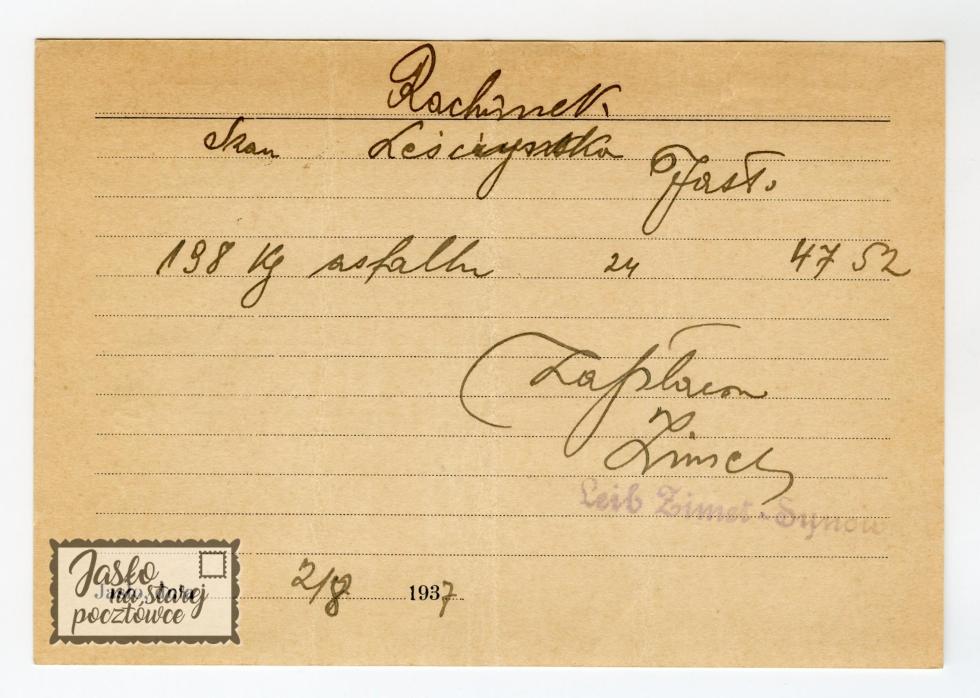 Rachunek
Jasło
198 Kg asfaltu 24 47 52
Zapłacon
Zimet
Leib Zimet - Synowie
2/8 1937
Jasło
na starej
pocztówce